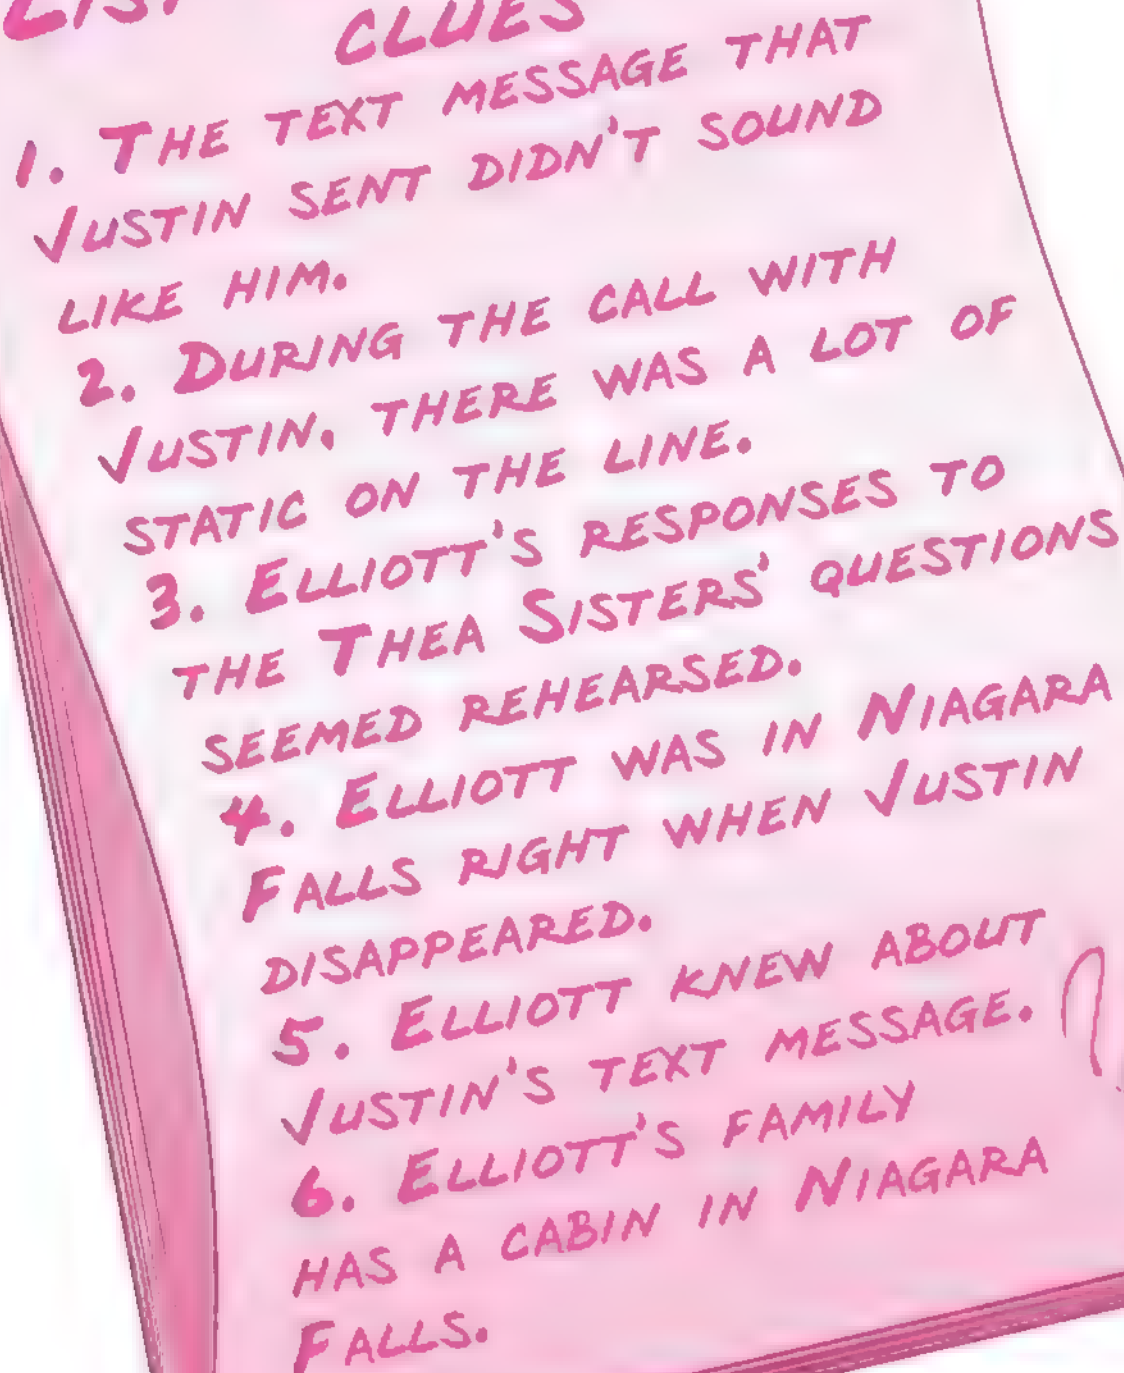 LIST
CLUES
1. THE TEXT MESSAGE THAT
JUSTIN SENT DIDN'T SOUND
LIKE HIM.
2. DURING THE CALL WITH
JUSTIN, THERE WAS A LOT OF
STATIC ON THE LINE.
3. ELLIOTT'S RESPONSES TO
THE THEA SISTERS' QUESTIONS
SEEMED REHEARSED.
4. ELLIOTT WAS IN NIAGARA
FALLS RIGHT WHEN JUSTIN
DISAPPEARED.
5. ELLIOTT KNEW ABOUT
JUSTIN'S TEXT MESSAGE.
6. ELLIOTT'S FAMILY
HAS A CABIN IN NIAGARA
FALLS.